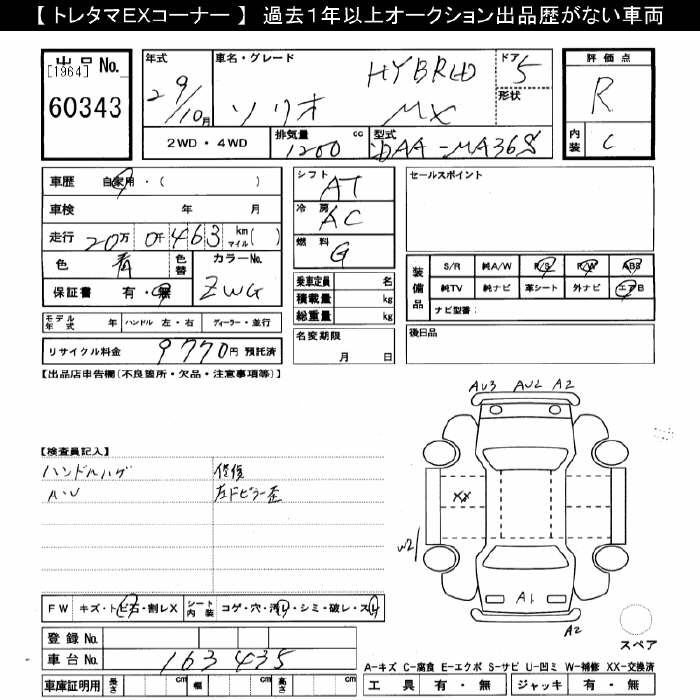 【 トレタマEXコーナー 】 過去1年以上オークション出品歴がない車両
出品 No.
[1964]
60343
年式 29/10月
車名・グレード ソリオ HYBRID MX
ドア 5
形状
評価点 R
内装 C
2WD・4WD
排気量 1200 cc
型式 DAA-MA36S
車歴 自家用・( )
車検 年 月
走行 20万0千463 km マイル( )
色 青
色替
カラーNo. ZWG
保証書 有・無
モデル年式 年 ハンドル 左・右 ディーラー・並行
リサイクル料金 9770円 預託済
シフト AT
冷房 AC
燃料 G
乗車定員 名
積載量 kg
総重量 kg
名変期限 月 日
セールスポイント
装備品 S/R 純A/W P/S P/W ABS
純TV 純ナビ 革シート 外ナビ エアB
ナビ型番:
後日品
【出品店申告欄(不良箇所・欠品・注意事項等)】
【検査員記入】
ハンドルハゲ 修復
左Fピラー歪
AU3 AU2 A2
XX
W2
A1
A2
スペア
FW キズ・トビ石・割レX シート内装 コゲ・穴・汚レ・シミ・破レ・スレ
登録 No.
車台 No. 163435
車庫証明用 長さ cm 幅 cm 高さ cm
A-キズ C-腐食 E-エクボ S-サビ U-凹ミ W-補修 XX-交換済
工具 有・無 ジャッキ 有・無